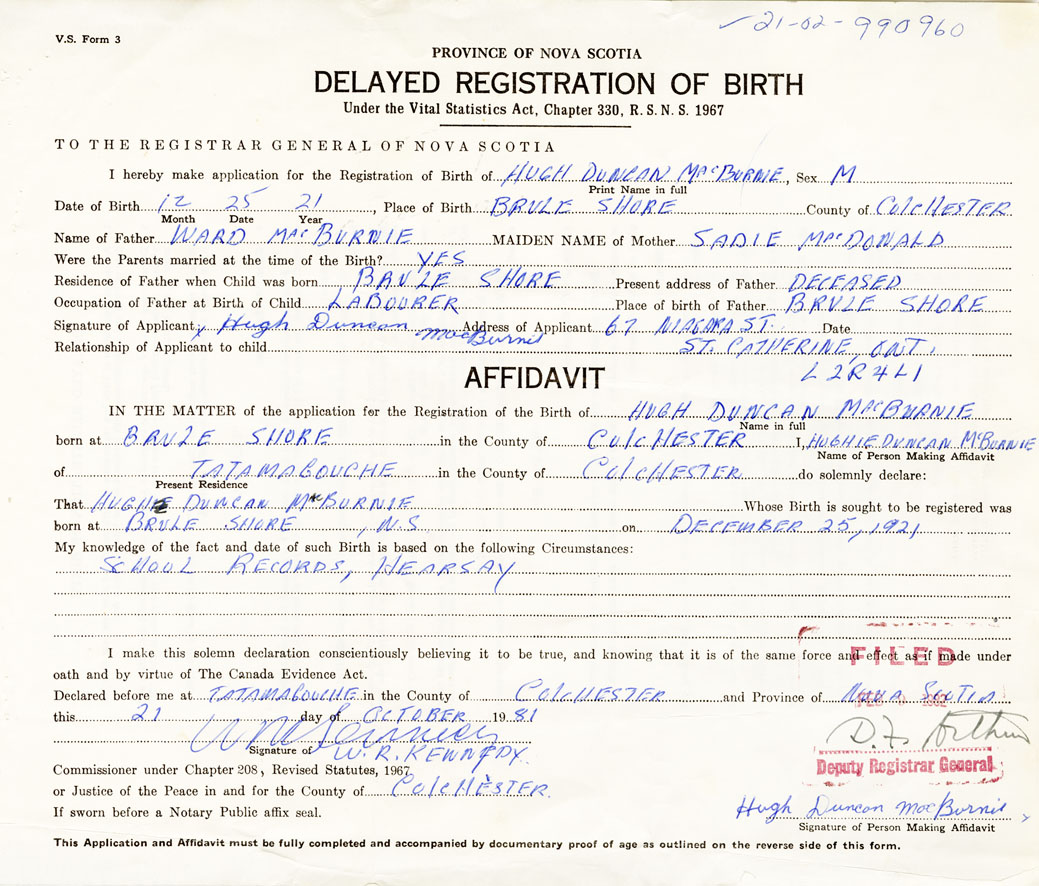 21-02-990960
V.S. Form 3
PROVINCE OF NOVA SCOTIA
DELAYED REGISTRATION OF BIRTH
Under the Vital Statistics Act, Chapter 330, R. S. N. S. 1967
TO THE REGISTRAR GENERAL OF NOVA SCOTIA
I hereby make application for the Registration of Birth of HUGH DUNCAN MACBURNIE, Sex M
Print Name in full
Date of Birth 12 25 21, Place of Birth BRULE SHORE County of COLCHESTER
Month Date Year
Name of Father WARD MACBURNIE MAIDEN NAME of Mother SADIE MACDONALD
Were the Parents married at the time of the Birth? YES
Residence of Father when Child was born BRULE SHORE Present address of Father DECEASED
Occupation of Father at Birth of Child LABOURER Place of birth of Father BRULE SHORE
Signature of Applicant x Hugh Duncan MacBurnie Address of Applicant 67 NIAGARA ST. Date
Relationship of Applicant to child ST. CATHERINE, ONT.
L2R4L1
AFFIDAVIT
IN THE MATTER of the application for the Registration of the Birth of HUGH DUNCAN MACBURNIE
Name in full
born at BRULE SHORE in the County of COLCHESTER I, HUGHIE DUNCAN MCBURNIE
Name of Person Making Affidavit
of TATAMAGOUCHE in the County of COLCHESTER do solemnly declare:
Present Residence
That HUGHIE DUNCAN MACBURNIE Whose Birth is sought to be registered was
born at BRULE SHORE, N.S on DECEMBER 25, 1921
My knowledge of the fact and date of such Birth is based on the following Circumstances:
SCHOOL RECORDS, HEARSAY
I make this solemn declaration conscientiously believing it to be true, and knowing that it is of the same force and effect as if made under
FILED
oath and by virtue of The Canada Evidence Act.
Declared before me at TATAMAGOUCHE in the County of COLCHESTER and Province of NOVA SCOTIA
this 21 day of OCTOBER 1981
Signature of W.R. KENNEDY
D.F. Arthur
Deputy Registrar General
Commissioner under Chapter 208, Revised Statutes, 1967
or Justice of the Peace in and for the County of COLCHESTER
Hugh Duncan MacBurnie x
If sworn before a Notary Public affix seal.
Signature of Person Making Affidavit
This Application and Affidavit must be fully completed and accompanied by documentary proof of age as outlined on the reverse side of this form.